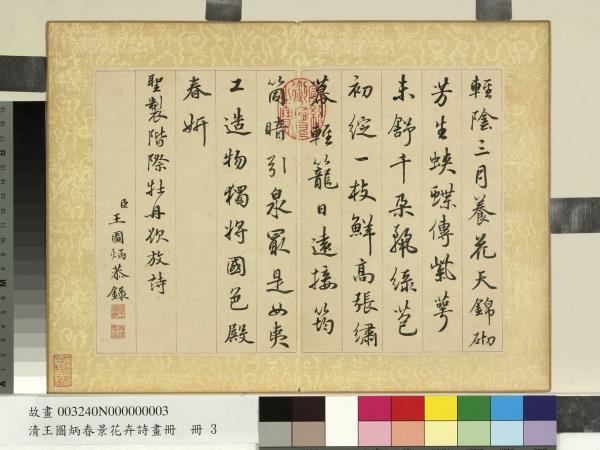 輕陰三月養花天錦砌
芳生蛺蝶傳紫萼
未舒千朶綠苞
初綻一枝鮮高張繡
幕輕籠日遠接筠
筒暗引泉最是女夷
工造物獨將國色殿
春妍
聖製階際牡丹欲放詩
臣王圖炳恭錄
故畫 003240N000000003
清王圖炳春景花卉詩畫冊 冊 3